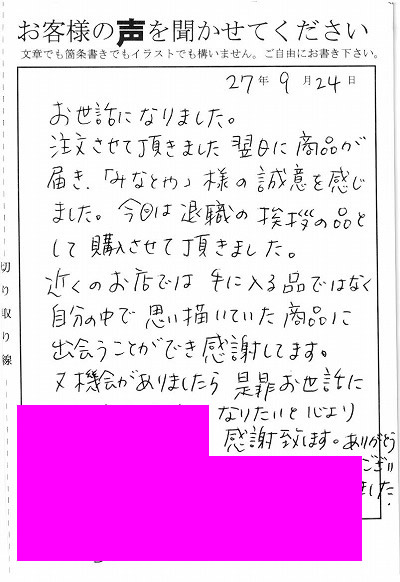 お客様の声を聞かせてください
文章でも箇条書きでもイラストでも構いません。ご自由にお書き下さい。
27年9月24日
お世話になりました。
注文させて頂きました翌日に商品が
届き、「みなとや」様の誠意を感じ
ました。今回は退職の挨拶の品と
して購入させて頂きました。
近くのお店では手に入る品ではなく
自分の中で思い描いていた商品に
出会うことができ感謝してます。
又機会がありましたら是非お世話に
なりたいと心より
感謝致します。ありがとう
ござい
ました。
切り取り線